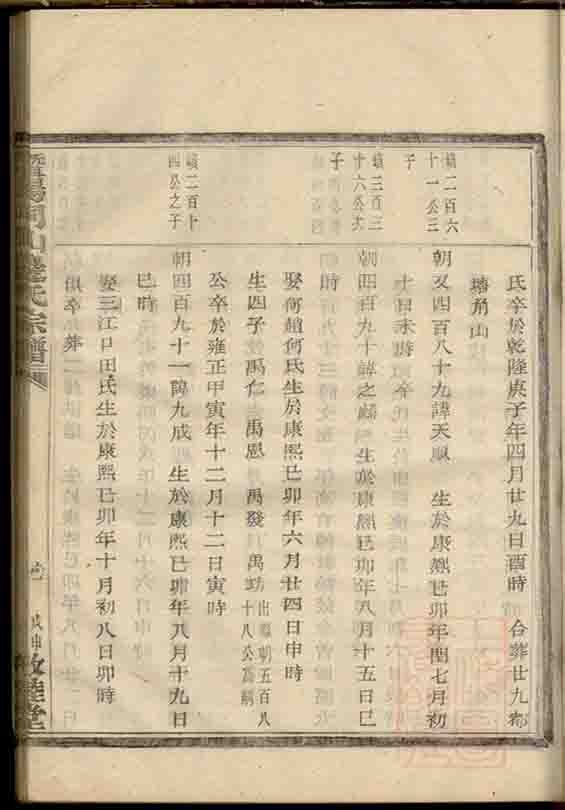 氏卒於乾隆庚子年四月廿九日酉時 合葬廿九都
塘角山
塡二百六
十一公三
子
朝又四百八十九諱天順 生於康熙己卯年閏七月初
十日未時 卒
塡三百三
十六公六
子
朝四百九十諱之麟 生於康熙己卯年八月十五日巳
時
娶何趙何氏生於康熙己卯年六月廿四日申時
生四子 禹仁 禹恩 禹發 禹功 出繼朝五百八
十八公爲嗣
公卒於雍正甲寅年十二月十二日寅時
塡二百十
四公之子
朝四百九十一諱九成 生於康熙己卯年八月十九日
巳時
娶三江口田氏生於康熙己卯年十月初八日卯時
俱卒 葬
山 氏宗譜
敦睦堂